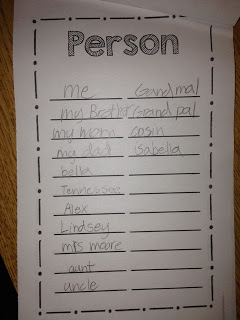 Person
me Grandmal
my Brother Grand pal
my mom cosin
my dad isabella
bella
Tennessee
Alex
Lindsey
mrs moore
aunt
uncle